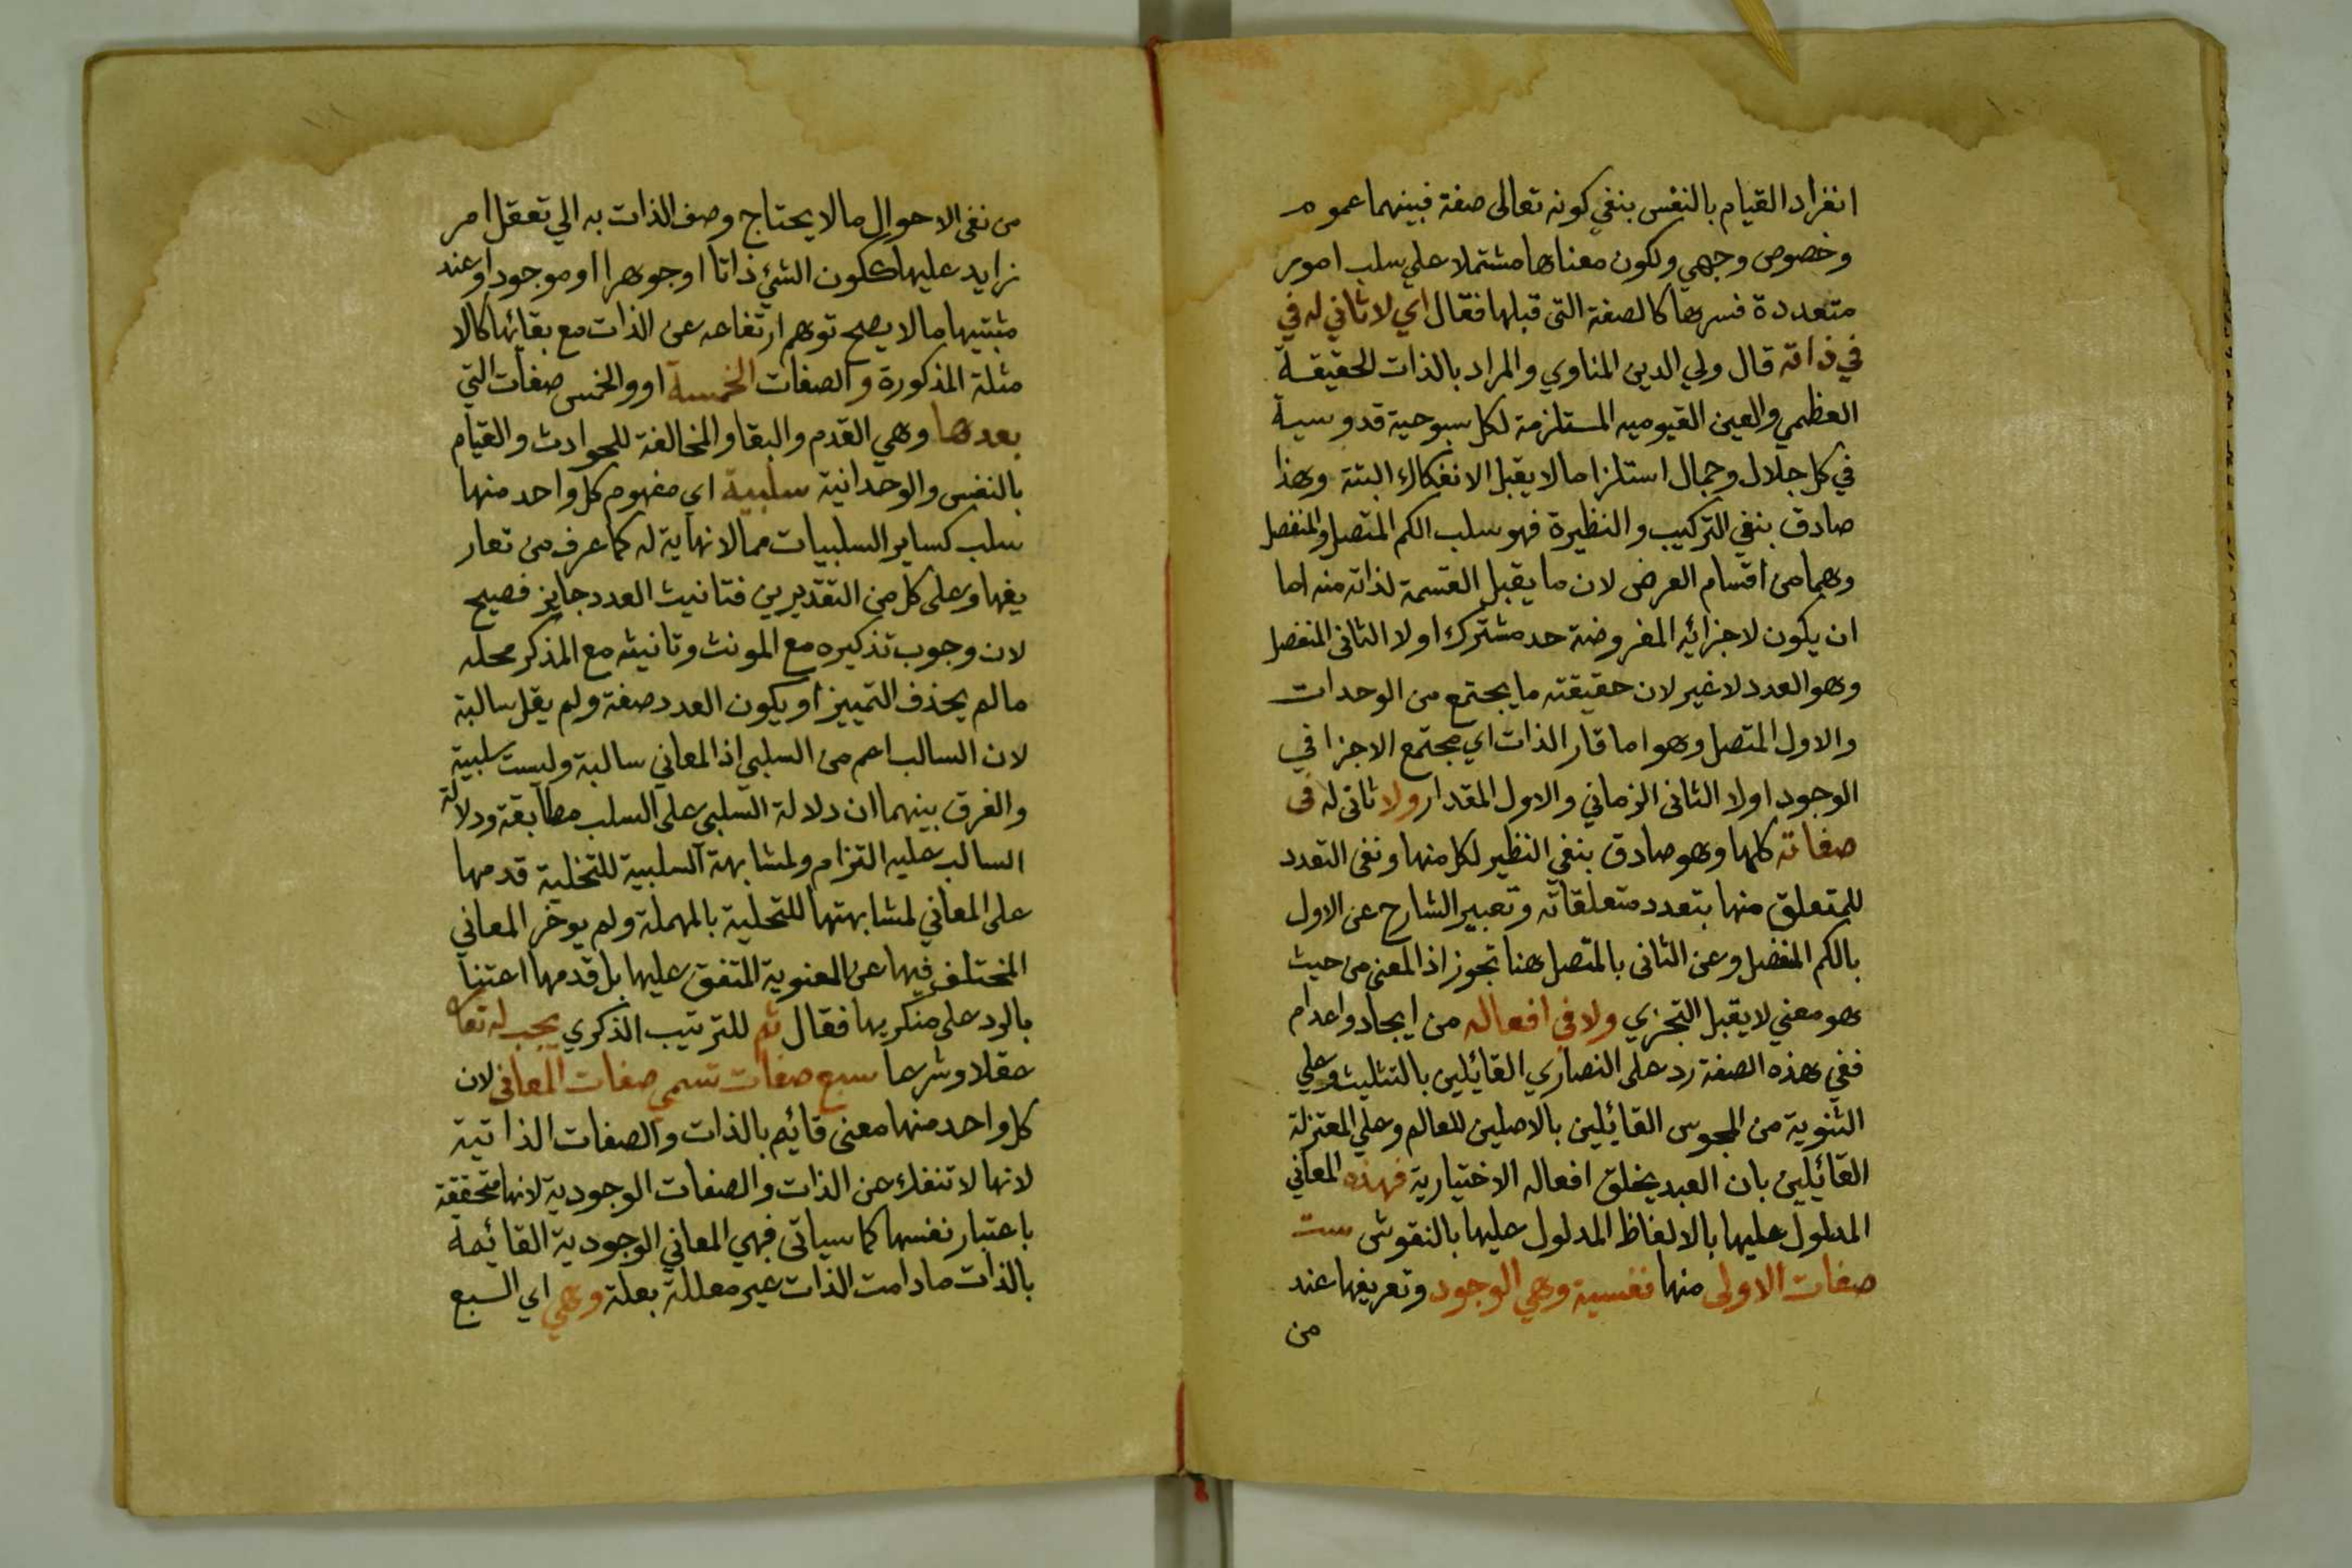 انفراد القيام بالنفس بنفي كونه تعالى صفة فبينهما عموم
وخصوص وجهي ولكون معناها مشتملا علي سلب امور
متعددة فسرها كالصفة التى قبلها فقال اي لا ثاني له في
في ذاته قال ولي الدين المناوي والمراد بالذات الحقيقة
العظمي والعين القيوميه المستلزمة لكل سبوحية قدوسية
في كل جلال وجمال استلزاما لا يقبل الانفكاك البتة وهذا
صادق بنفي التركيب والنظيرة فهو سلب الكم المتصل والمنفصل
وهما من اقسام العرض لان ما يقبل القسمة لذاته منه اما
ان يكون لاجزائه المفروضة حد مشترك اولا الثانى المنفصل
وهو العدد لا غير لان حقيقته ما يجتمع من الوحدات
والاول المتصل وهو اما قار الذات اي مجتمع الاجزا في
الوجود اولا الثانى الزماني والاول المقدار ولا ثانى له فى
صفاته كلها وهو صادق بنفي النظير لكل منها ونفى التعدد
للمتعلق منها بتعدد متعلقاته وتعبير الشارح عن الاول
بالكم المنفصل وعن الثانى بالمتصل هنا تجوز اذ المعنى من حيث
هو معني لا يقبل التجزي ولا في افعاله من ايجاد واعدام
ففي هذه الصفة رد على النصاري القائيلين بالتثليث وعلي
الثنوية من المجوس القائيلين بالاصلين للعالم وعلي المعتزلة
القائيلين بان العبد يخلق افعاله الاختيارية فهذه المعاني
المدلول عليها بالالفاظ المدلول عليها بالنقوش ست
صفات الاولى منها نفسية وهي الوجود وتعريفها عند
من
من نفى الاحوال ما لا يحتاج وصف الذات به الي تعقل امر
زايد عليها ككون الشئ ذاتا او جوهرا او موجودا وعند
مثبتيها ما لا يصح توهم ارتفاعه عن الذات مع بقائها كالا
مثلة المذكورة والصفات الخمسة او والخمس صفات التي
بعدها وهي القدم والبقا والمخالفة للحوادث والقيام
بالنفس والوحدانية سلبية اي مفهوم كل واحد منها
سلب كساير السلبيات مما لا نهاية له كما عرف من تعار
يفها وعلى كل من التقديرين فتانيث العدد جايز فصيح
لان وجوب تذكيره مع المونث وتانيثه مع المذكر محله
ما لم يحذف التمييز او يكون العدد صفة ولم يقل سالبة
لان السالب اعم من السلبي اذ المعاني سالبة وليست سلبية
والفرق بينهما ان دلالة السلبي على السلب مطابقة ودلالة
السالب عليه التزام ولمشابهة السلبية للتخلية قدمها
على المعاني لمشابهتها للتحلية بالمهملة ولم يوخر المعاني
المختلف فيها عن المعنوية المتفق عليها بل قدمها اعتنا
بالرد على منكريها فقال ثم للترتيب الذكري يجب له تعالى
عقلا وشرعا سبع صفات تسمى صفات المعانى لان
كل واحد منها معنى قائيم بالذات والصفات الذاتية
لانها لا تنفك عن الذات والصفات الوجودية لانها متحققة
باعتبار نفسها كما سياتى فهي المعاني الوجودية القائيمة
بالذات ما دامت الذات غير معللة بعلة وهي اي السبع